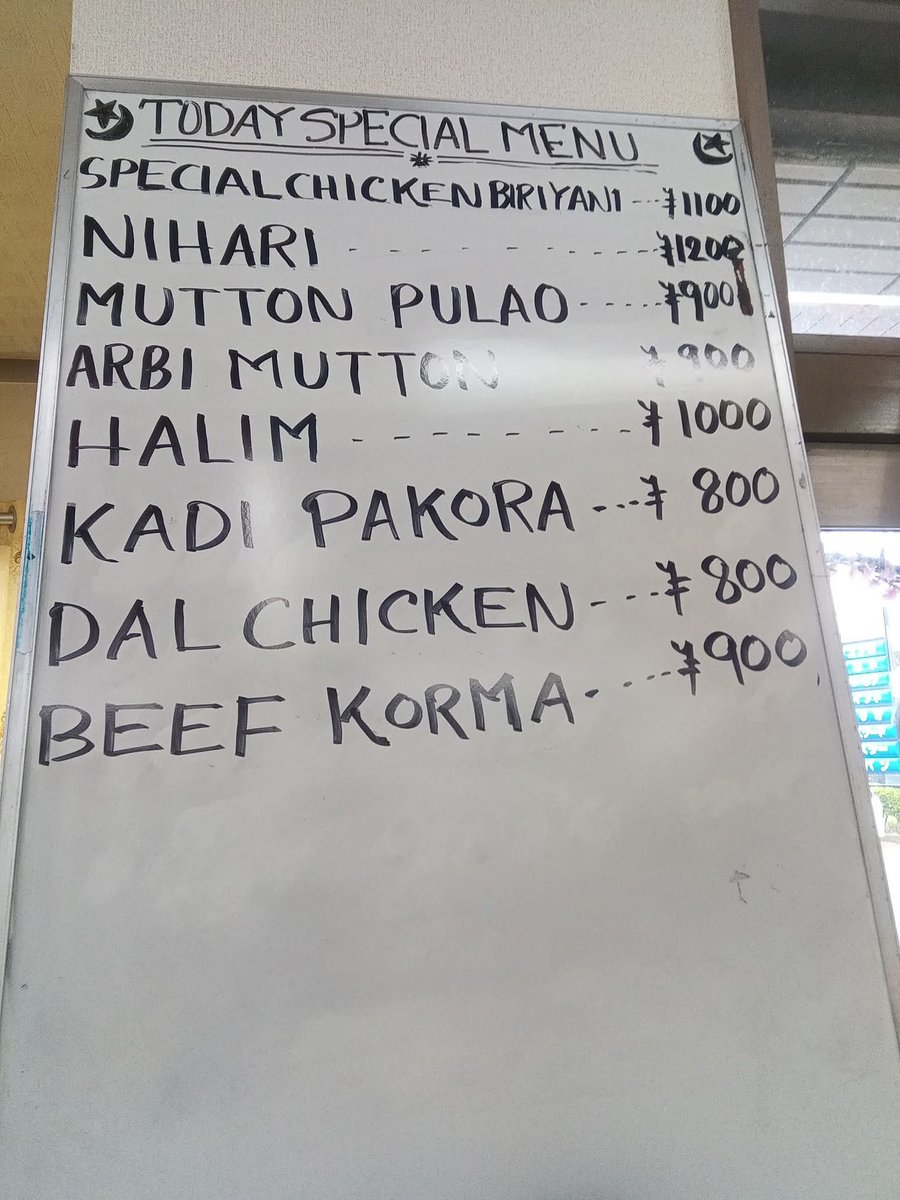 TODAY SPECIAL MENU
SPECIAL CHICKEN BIRIYANI --- ¥1100
NIHARI - - - - - - - - - ¥1200
MUTTON PULAO ----- ¥900
ARBI MUTTON ¥900
HALIM - - - - - - - - ¥1000
KADI PAKORA --- ¥800
DAL CHICKEN ---- ¥800
BEEF KORMA ----- ¥900